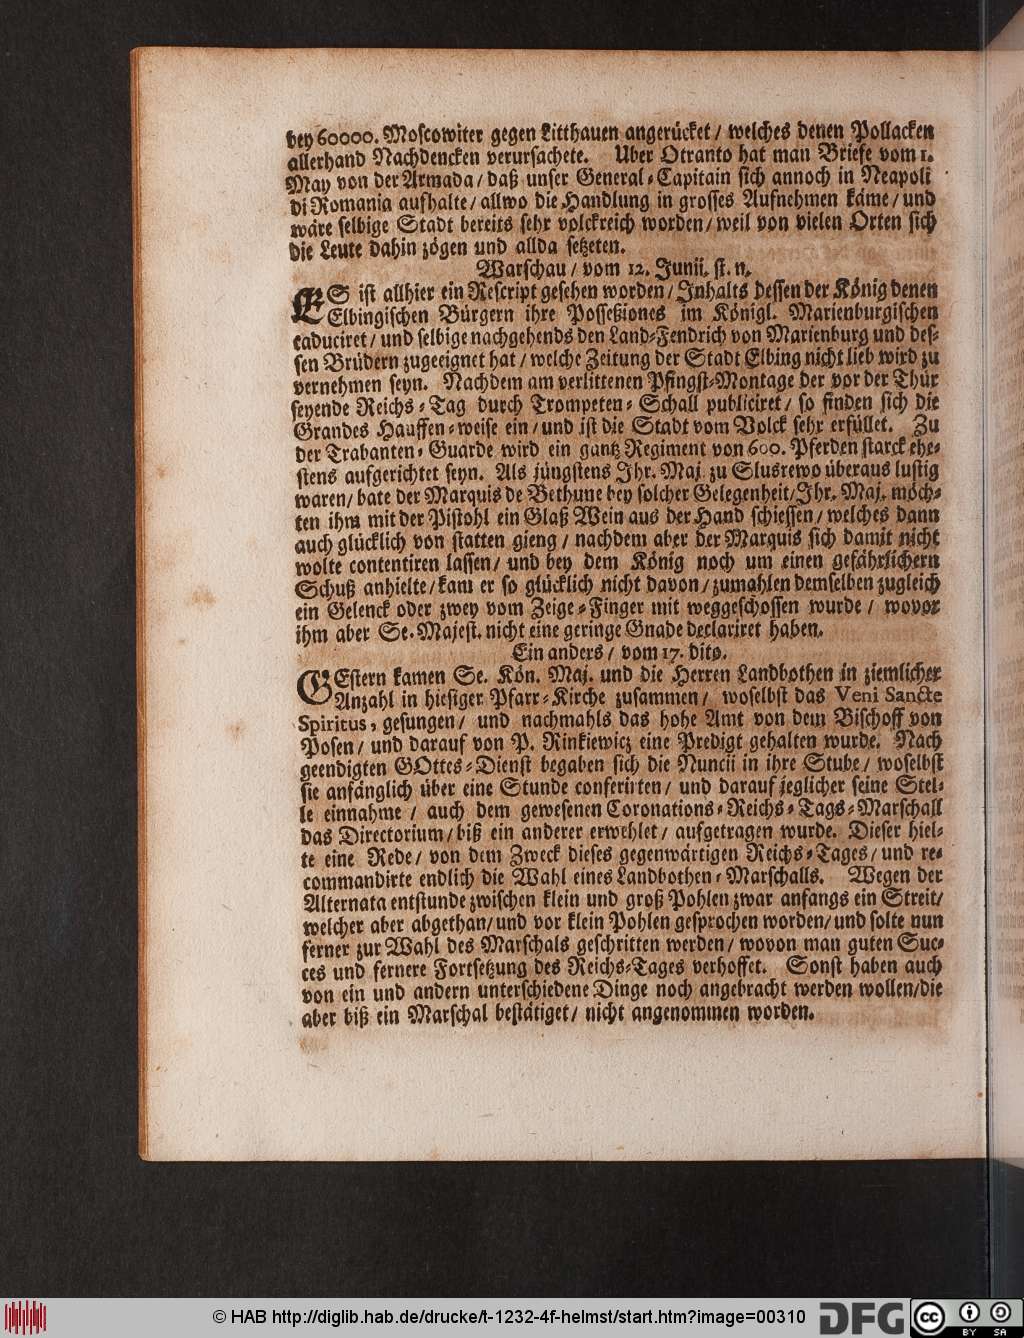 bey 60000. Moscowiter gegen Litthauen angerücket / welches denen Pollacken
allerhand Nachdencken verursachete. Uber Otranto hat man Briefe vom 1.
May von der Armada / daß unser General-Capitain sich annoch in Neapoli
di Romania aufhalte / allwo die Handlung in grosses Aufnehmen käme / und
wäre selbige Stadt bereits sehr volckreich worden / weil von vielen Orten sich
die Leute dahin zögen und allda setzeten.
Warschau / vom 12. Junii. st. n.
ES ist allhier ein Rescript gesehen worden / Inhalts dessen der König denen
Elbingischen Bürgern ihre Possessiones im Königl. Marienburgischen
caduciret / und selbige nachgehends den Land-Fendrich von Marienburg und des-
sen Brüdern zugeeignet hat / welche Zeitung der Stadt Elbing nicht lieb wird zu
vernehmen seyn. Nachdem am verlittenen Pfingst-Montage der vor der Thür
seyende Reichs-Tag durch Trompeten-Schall publiciret / so finden sich die
Grandes Hauffen-weise ein / und ist die Stadt vom Volck sehr erfüllet. Zu
der Trabanten-Guarde wird ein gantz Regiment von 600. Pferden starck ehe-
stens aufgerichtet seyn. Als jüngstens Ihr. Maj. zu Slusrewo überaus lustig
waren / bate der Marquis de Bethune bey solcher Gelegenheit / Ihr. Maj. möch-
ten ihm mit der Pistohl ein Glaß Wein aus der Hand schiessen / welches dann
auch glücklich von statten gieng / nachdem aber der Marquis sich damit nicht
wolte contentiren lassen / und bey dem König noch um einen gefährlichern
Schuß anhielte / kam er so glücklich nicht davon / zumahlen demselben zugleich
ein Gelenck oder zwey vom Zeige-Finger mit weggeschossen wurde / wovor
ihm aber Se. Majest. nicht eine geringe Gnade declariret haben.
Ein anders / vom 17. dito.
GEstern kamen Se. Kön. Maj. und die Herren Landbothen in ziemlicher
Anzahl in hiesiger Pfarr-Kirche zusammen / woselbst das Veni Sancte
Spiritus, gesungen / und nachmahls das hohe Amt von dem Bischoff von
Posen / und darauf von P. Rinkiewicz eine Predigt gehalten wurde. Nach
geendigten GOttes-Dienst begaben sich die Nuncii in ihre Stube / woselbst
sie anfänglich über eine Stunde conferirten / und darauf jeglicher seine Stel-
le einnahme / auch dem gewesenen Coronations-Reichs-Tags-Marschall
das Directorium / biß ein anderer erwehlet / aufgetragen wurde. Dieser hiel-
te eine Rede / von dem Zweck dieses gegenwärtigen Reichs-Tages / und re-
commandirte endlich die Wahl eines Landbothen-Marschalls. Wegen der
Alternata entstunde zwischen klein und groß Pohlen zwar anfangs ein Streit /
welcher aber abgethan / und vor klein Pohlen gesprochen worden / und solte nun
ferner zur Wahl des Marschals geschritten werden / wovon man guten Suc-
ces und fernere Fortsetzung des Reichs-Tages verhoffet. Sonst haben auch
von ein und andern unterschiedene Dinge noch angebracht werden wollen / die
aber biß ein Marschal bestätiget / nicht angenommen worden.
© HAB http://diglib.hab.de/drucke/t-1232-4f-helmst/start.htm?image=00310
DFG
cc BY SA